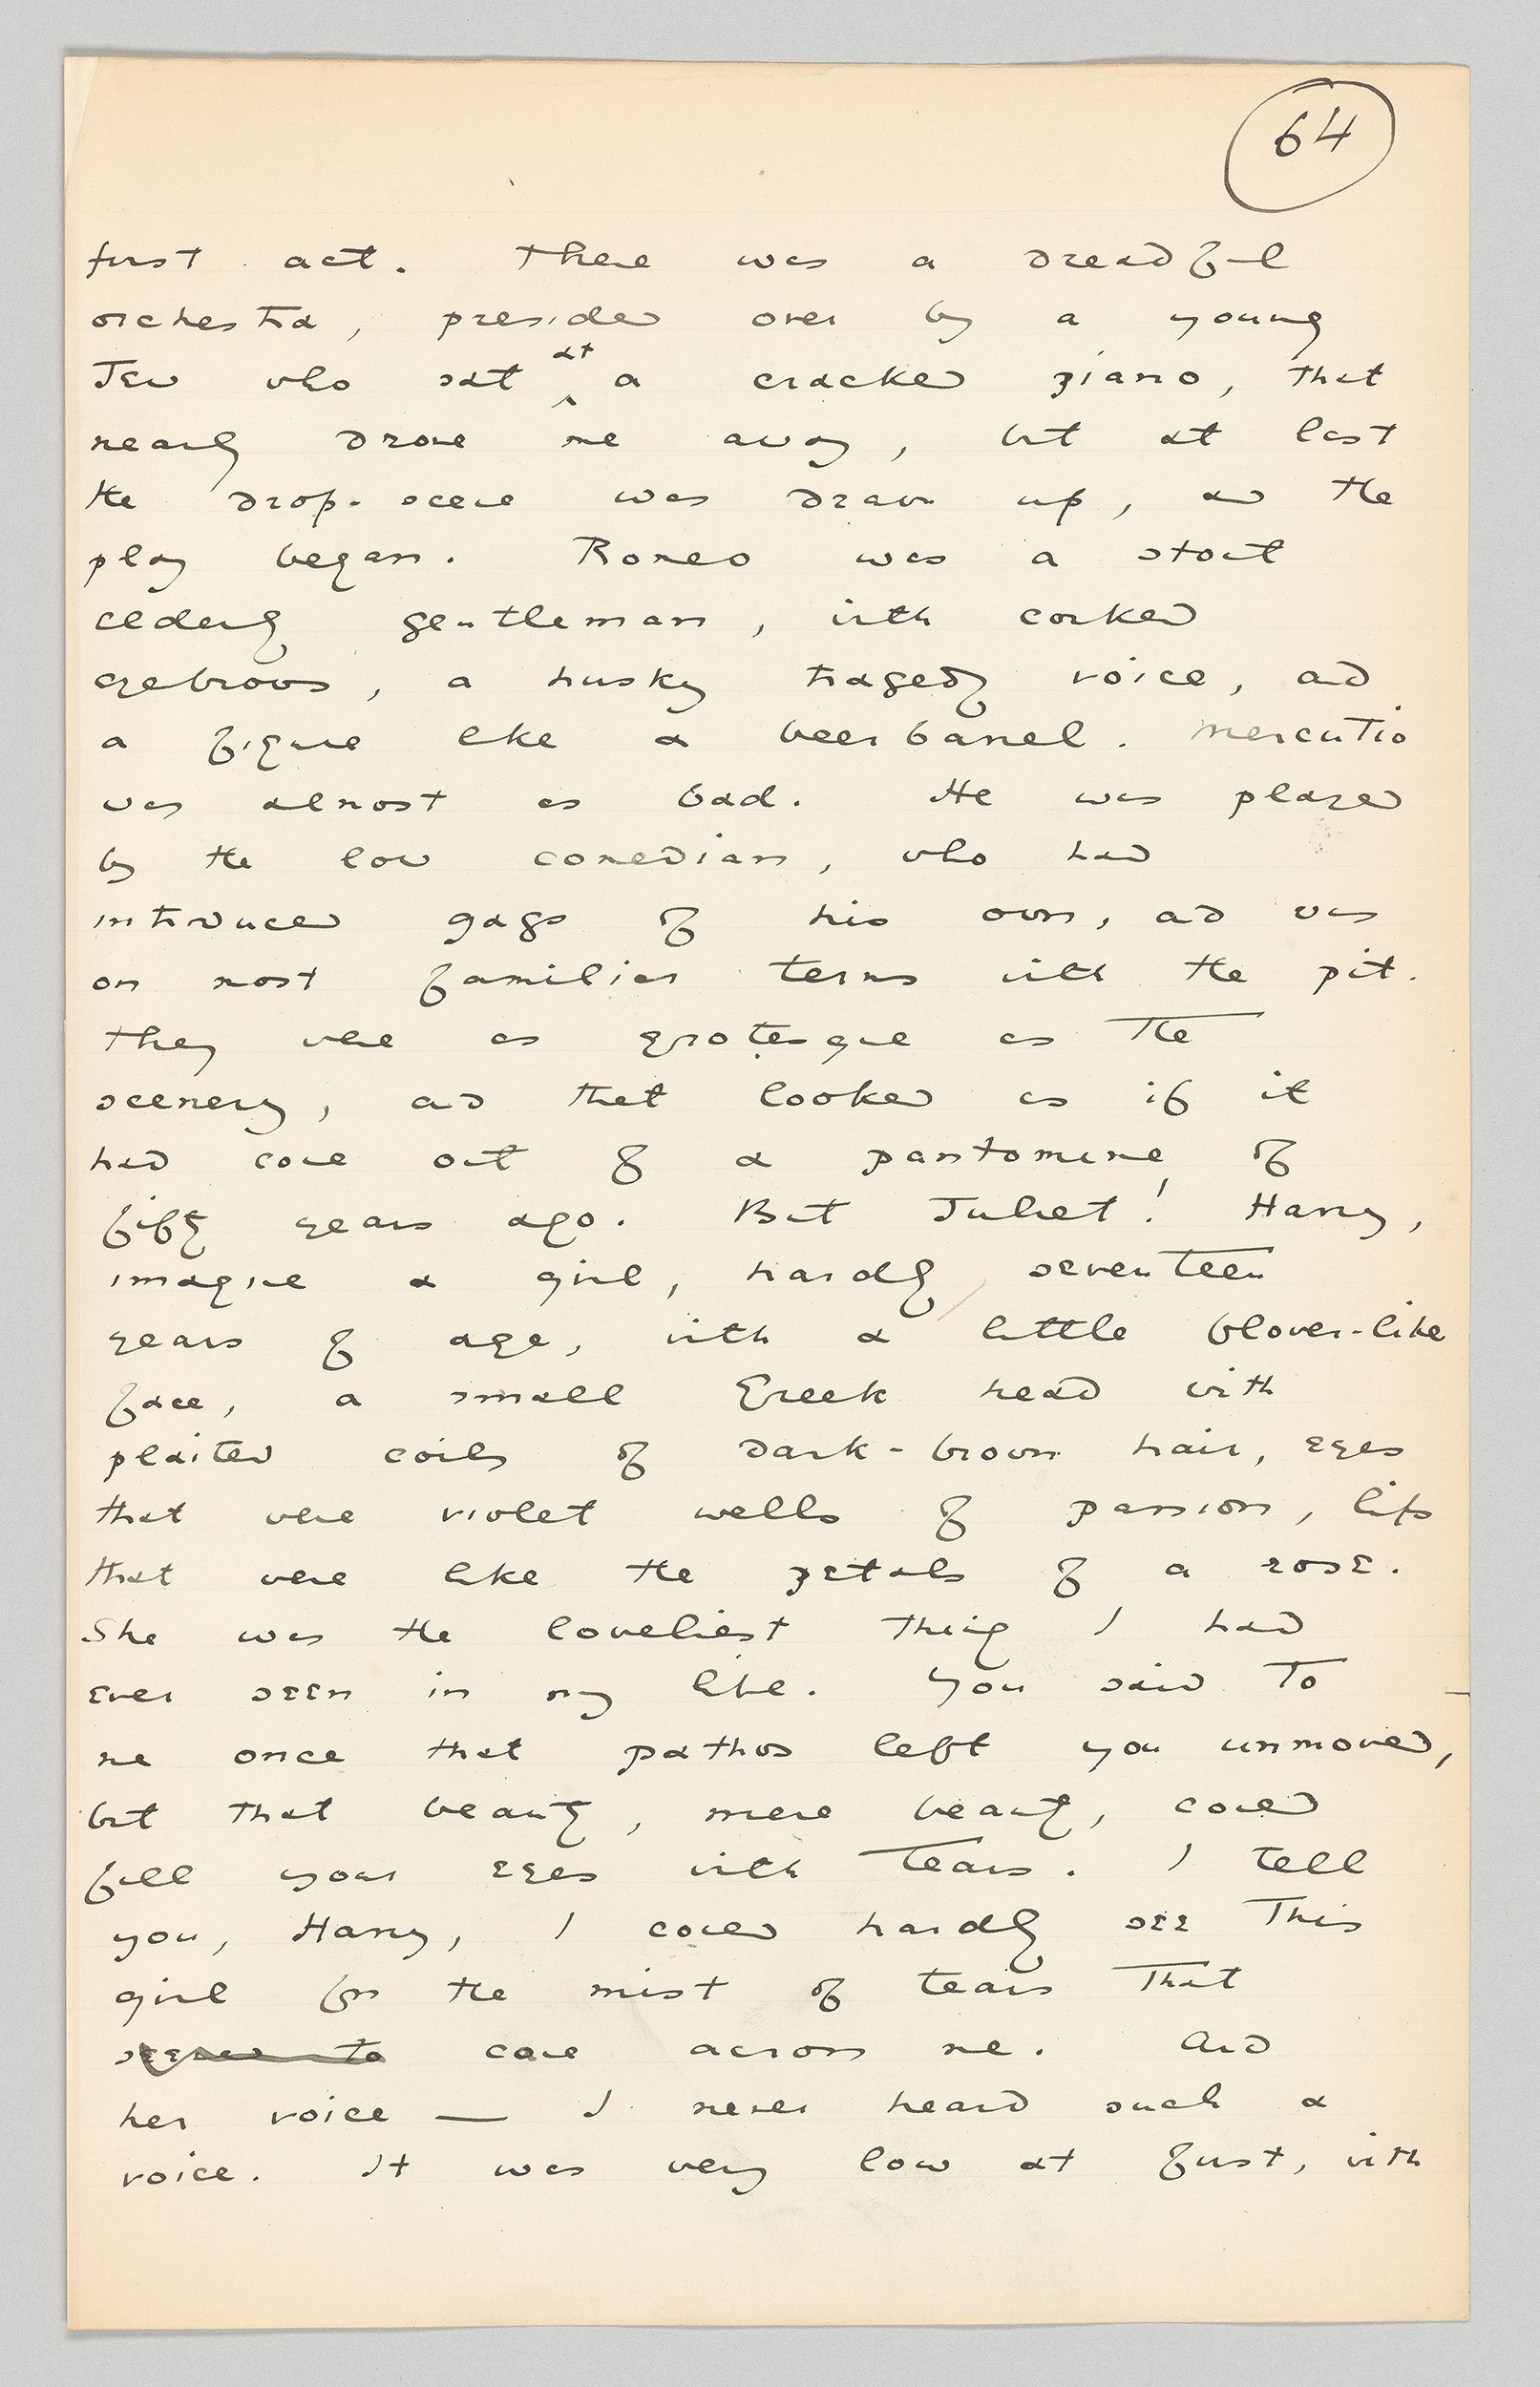 64
first act. There was a dreadful
orchestra, presided over by a young
Jew who sat at a cracked piano, that
nearly drove me away, but at last
the drop-scene was drawn up, and the
play began. Romeo was a stout
elderly gentleman, with corked
eyebrows, a husky tragedy voice, and
a figure like a beer barrel. Mercutio
was almost as bad. He was played
by the low comedian, who had
introduced gags of his own, and was
on most familiar terms with the pit.
They were as grotesque as the
scenery, and that looked as if it
had come out of a pantomime of
fifty years ago. But Juliet! Harry,
imagine a girl, hardly seventeen
years of age, with a little flower-like
face, a small Greek head with
plaited coils of dark-brown hair, eyes
that were violet wells of passion, lips
that were like the petals of a rose.
She was the loveliest thing I had
ever seen in my life. You said to
me once that pathos left you unmoved,
but that beauty, mere beauty, could
fill your eyes with tears. I tell
you, Harry, I could hardly see this
girl for the mist of tears that
seemed to came across me. And
her voice — I never heard such a
voice. It was very low at first, with